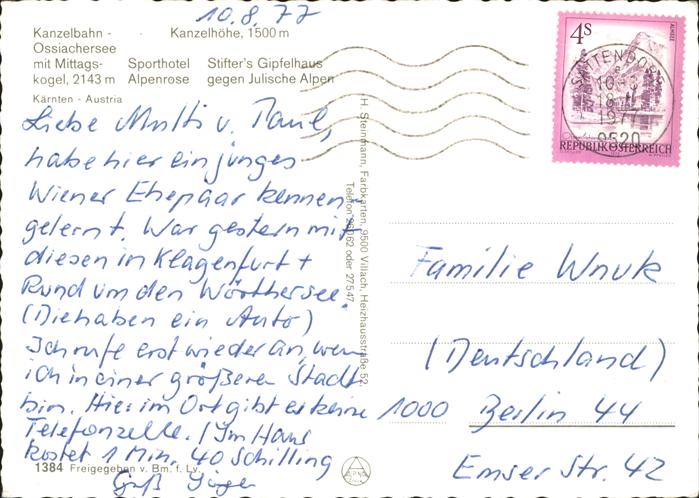 10.8.77
Kanzelbahn - Kanzelhöhe, 1500 m
Ossiachersee
mit Mittags- Sporthotel Stifter's Gipfelhaus
kogel, 2143 m Alpenrose gegen Julische Alpen
Kärnten - Austria
Liebe Mutti u. Paul,
habe hier ein junges
Wiener Ehepaar kennen-
gelernt. War gestern mit
diesen in Klagenfurt +
Rund um den Wörthersee.
(Die haben ein Auto)
Ich rufe erst wieder an, wenn
ich in einer größeren Stadt
bin. Hier im Ort gibt es keine
Telefonzelle. / Im Haus
kostet 1 Min. 40 Schilling
Gruß Jürgen
1384 Freigegeben v. Bm. f. Lv.
H. Steinmann, Farbkarten, 9500 Villach, Heizhausstraße 62
4S
ALMSEE
REPUBLIK ÖSTERREICH
SATTENDORF
10.8.
18
1977
9520
Familie Wnuk
(Deutschland)
1000 Berlin 44
Emser Str. 42